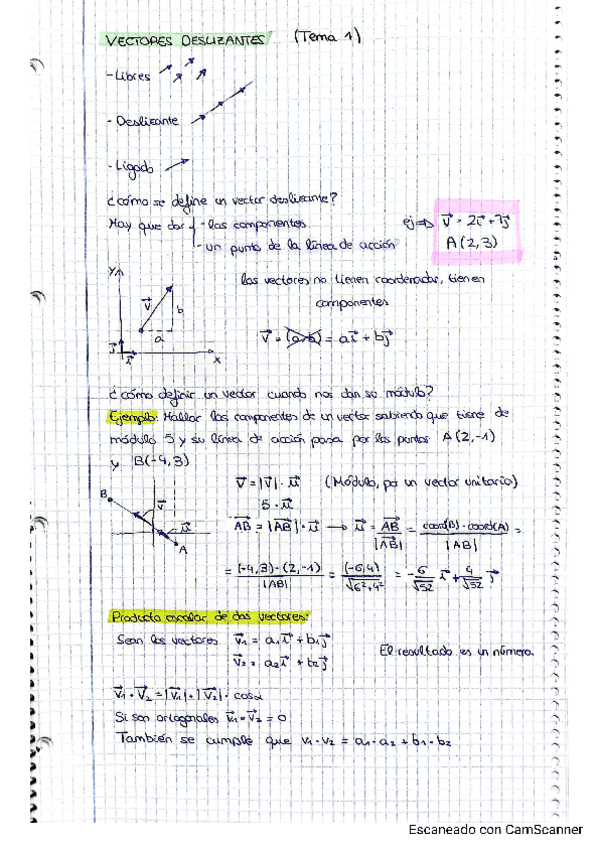 VECTORES DESLIZANTES (Tema 1)
- Libres
- Deslizante
- Ligado
¿cómo se define un vector deslizante?
Hay que dar { - las componentes
- un punto de la línea de acción
ej ⇒ v⃗ = 2i⃗ + 3j⃗
A (2,3)
los vectores no tienen coordenadas, tienen
componentes
Y
v⃗
b
a
j⃗
i⃗
X
v⃗ = (a,b) = ai⃗ + bj⃗
¿cómo definir un vector cuando nos dan su módulo?
Ejemplo: Hallar las componentes de un vector sabiendo que tiene de
módulo 5 y su línea de acción pasa por los puntos A (2,-1)
y B(-4,3)
B
v⃗
u⃗
A
v⃗ = |v⃗| · u⃗ (Módulo, por un vector unitario)
5 · u⃗
AB⃗ = |AB⃗| · u⃗ → u⃗ = AB⃗ / |AB⃗| = coord(B) - coord(A) / |AB| =
= (-4,3) - (2,-1) / |AB| = (-6,4) / √6²+4² = -6/√52 i⃗ + 4/√52 j⃗
Producto escalar de dos vectores:
Sean los vectores v⃗₁ = a₁i⃗ + b₁j⃗
v⃗₂ = a₂i⃗ + b₂j⃗
El resultado es un número.
v⃗₁ · v⃗₂ = |v⃗₁| · |v⃗₂| · cosα
Si son ortogonales v⃗₁ · v⃗₂ = 0
También se cumple que v₁ · v₂ = a₁ · a₂ + b₁ · b₂
Escaneado con CamScanner